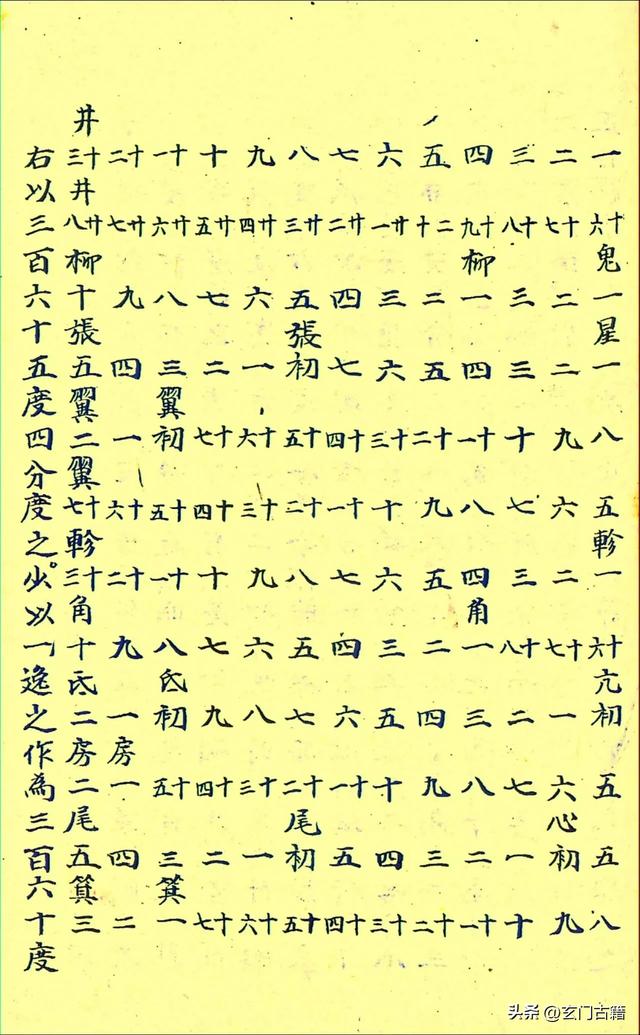 一十六鬼一星一八五軫一十六亢初五五八
二十七二二九六二十七一六心初九
三十八三三十七三十八二七一十
四十九柳一四十一八四角一三八二十一
五二十二五十二九五二四九三十二
六廿一三六十三十六三五十四十三
七廿二四七十四十一七四六十一五十四
八廿三五張初十五十二八五七十二尾初十五
九廿四六一十六十三九六八十三一十六
十廿五七二十七十四十七九十四二十七
十一廿六八三翼初十五十一八氐初十五三箕一
十二廿七九四一十六十二九一房一四二
井十三井廿八柳十張五翼二翼十七軫十三角十氐二房二尾五箕三
右以三百六十五度四分度之少以一逸之作為三百六十度
头条 @玄门古籍